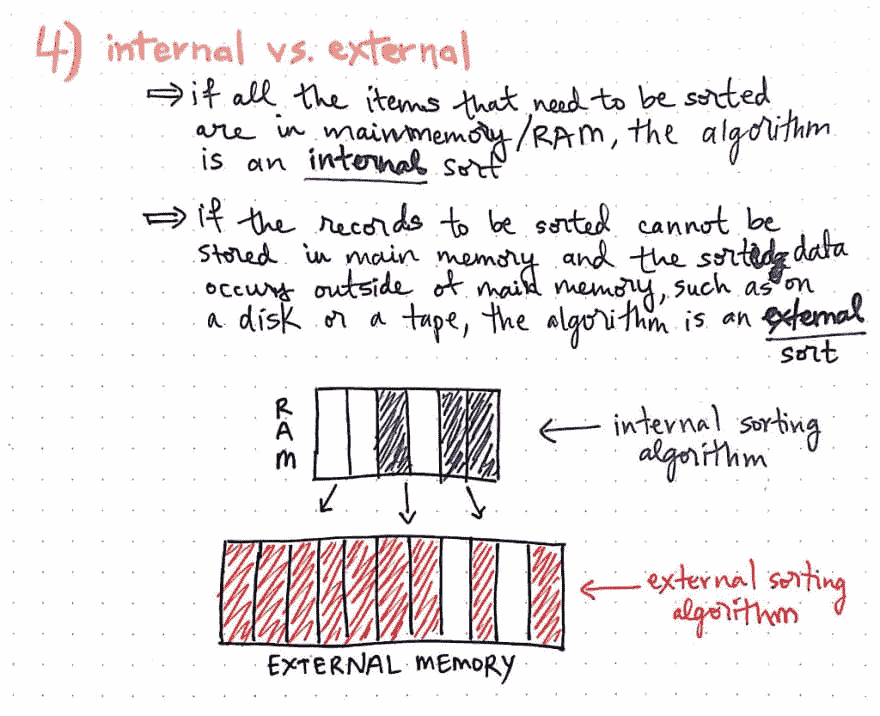 4) internal vs. external
⇒ if all the items that need to be sorted
are in main memory/RAM, the algorithm
is an internal sort
⇒ if the records to be sorted cannot be
stored in main memory and the sorting data
occurs outside of main memory, such as on
a disk or a tape, the algorithm is an external
sort
RAM
← internal sorting
algorithm
← external sorting
algorithm
EXTERNAL MEMORY